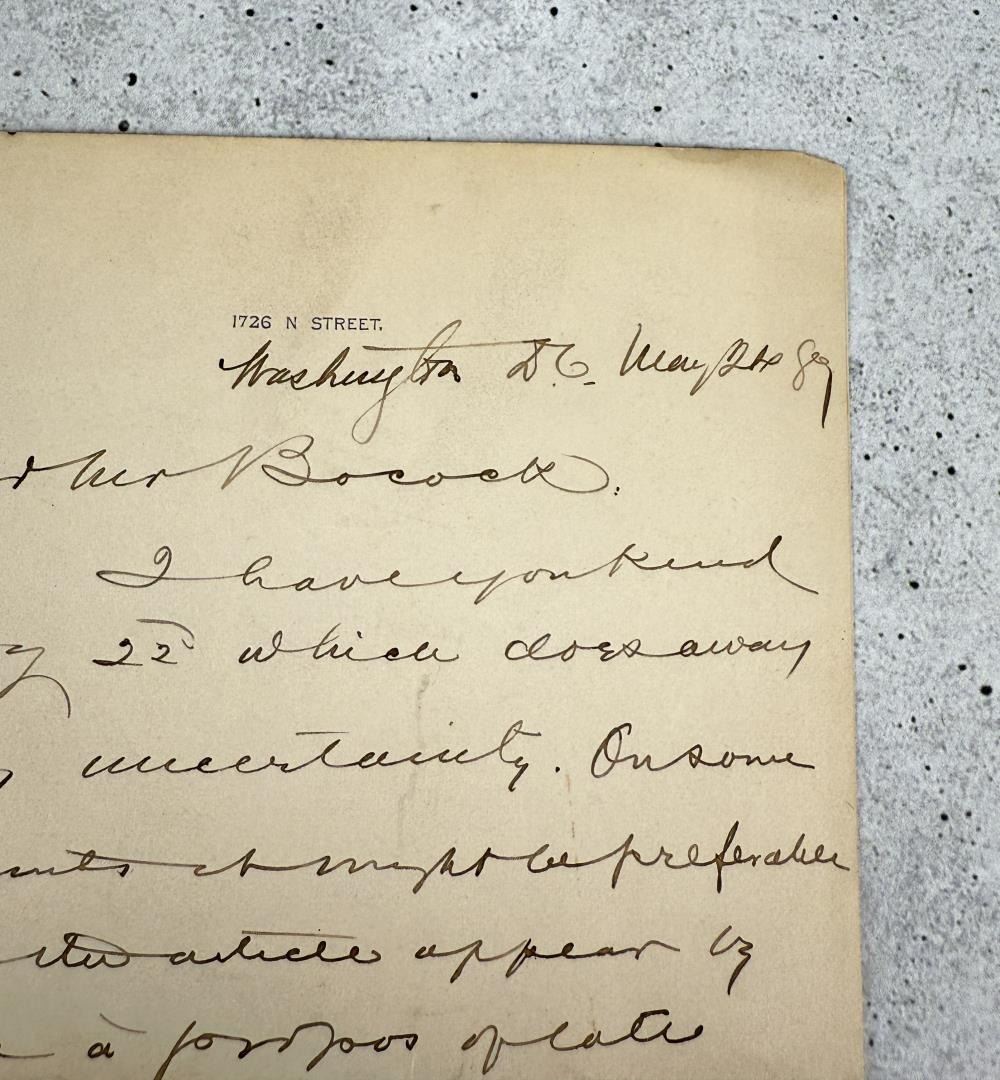 1726 N STREET.
Washington D.C. May 24 89
Mr Bocock:
I have your kind
22 which does away
uncertainty. On some
it might be preferable
article appear by
à propos of late